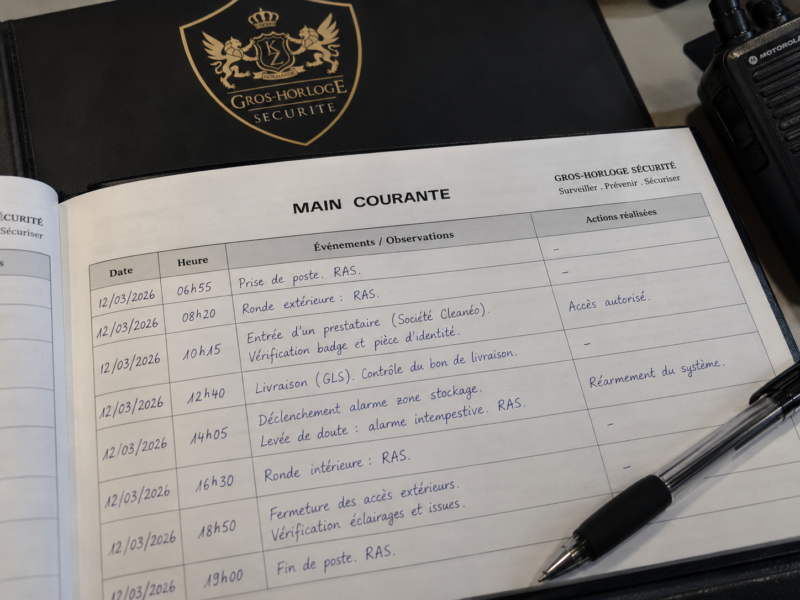 KZ
NORMANDY
GROS-HORLOGE
SECURITE
MOTOROLA
ÉCURITÉ
Sécuriser
s
MAIN COURANTE
GROS-HORLOGE SÉCURITÉ
Surveiller . Prévenir . Sécuriser
Date Heure Événements / Observations Actions réalisées
12/03/2026 06h55 Prise de poste. RAS. –
12/03/2026 08h20 Ronde extérieure : RAS. –
12/03/2026 10h15 Entrée d'un prestataire (Société Cleanéo).
Vérification badge et pièce d'identité. Accès autorisé.
12/03/2026 12h40 Livraison (GLS). Contrôle du bon de livraison. –
12/03/2026 14h05 Déclenchement alarme zone stockage.
Levée de doute : alarme intempestive. RAS. Réarmement du système.
12/03/2026 16h30 Ronde intérieure : RAS. –
12/03/2026 18h50 Fermeture des accès extérieurs.
Vérification éclairages et issues. –
12/03/2026 19h00 Fin de poste. RAS.